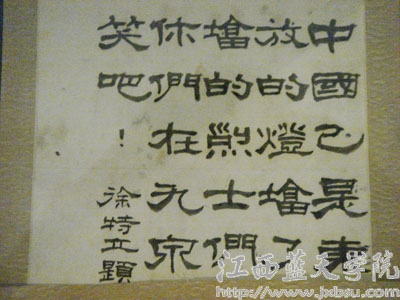 中國已是
放的燈墖了
墖的烈士們
你們在九泉
笑吧！
徐特立題
江西蓝天学院
http://www.jxbsu.com